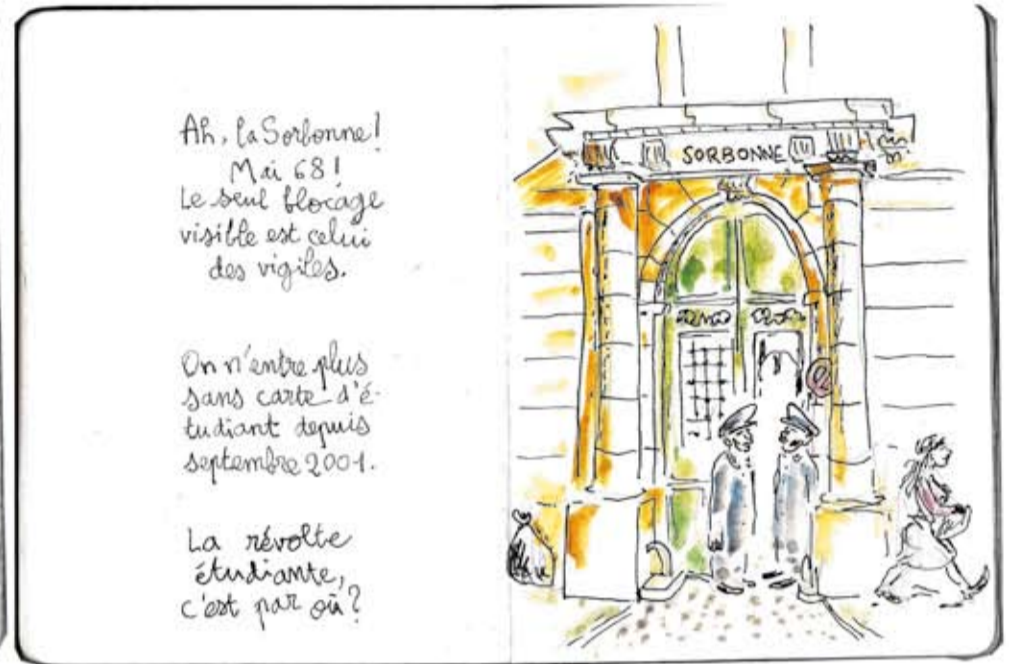 Ah, la Sorbonne!
Mai 68!
Le seul blocage
visible est celui
des vigiles.
On n'entre plus
sans carte d'é-
tudiant depuis
septembre 2001.
La révolte
étudiante,
c'est par où?
SORBONNE